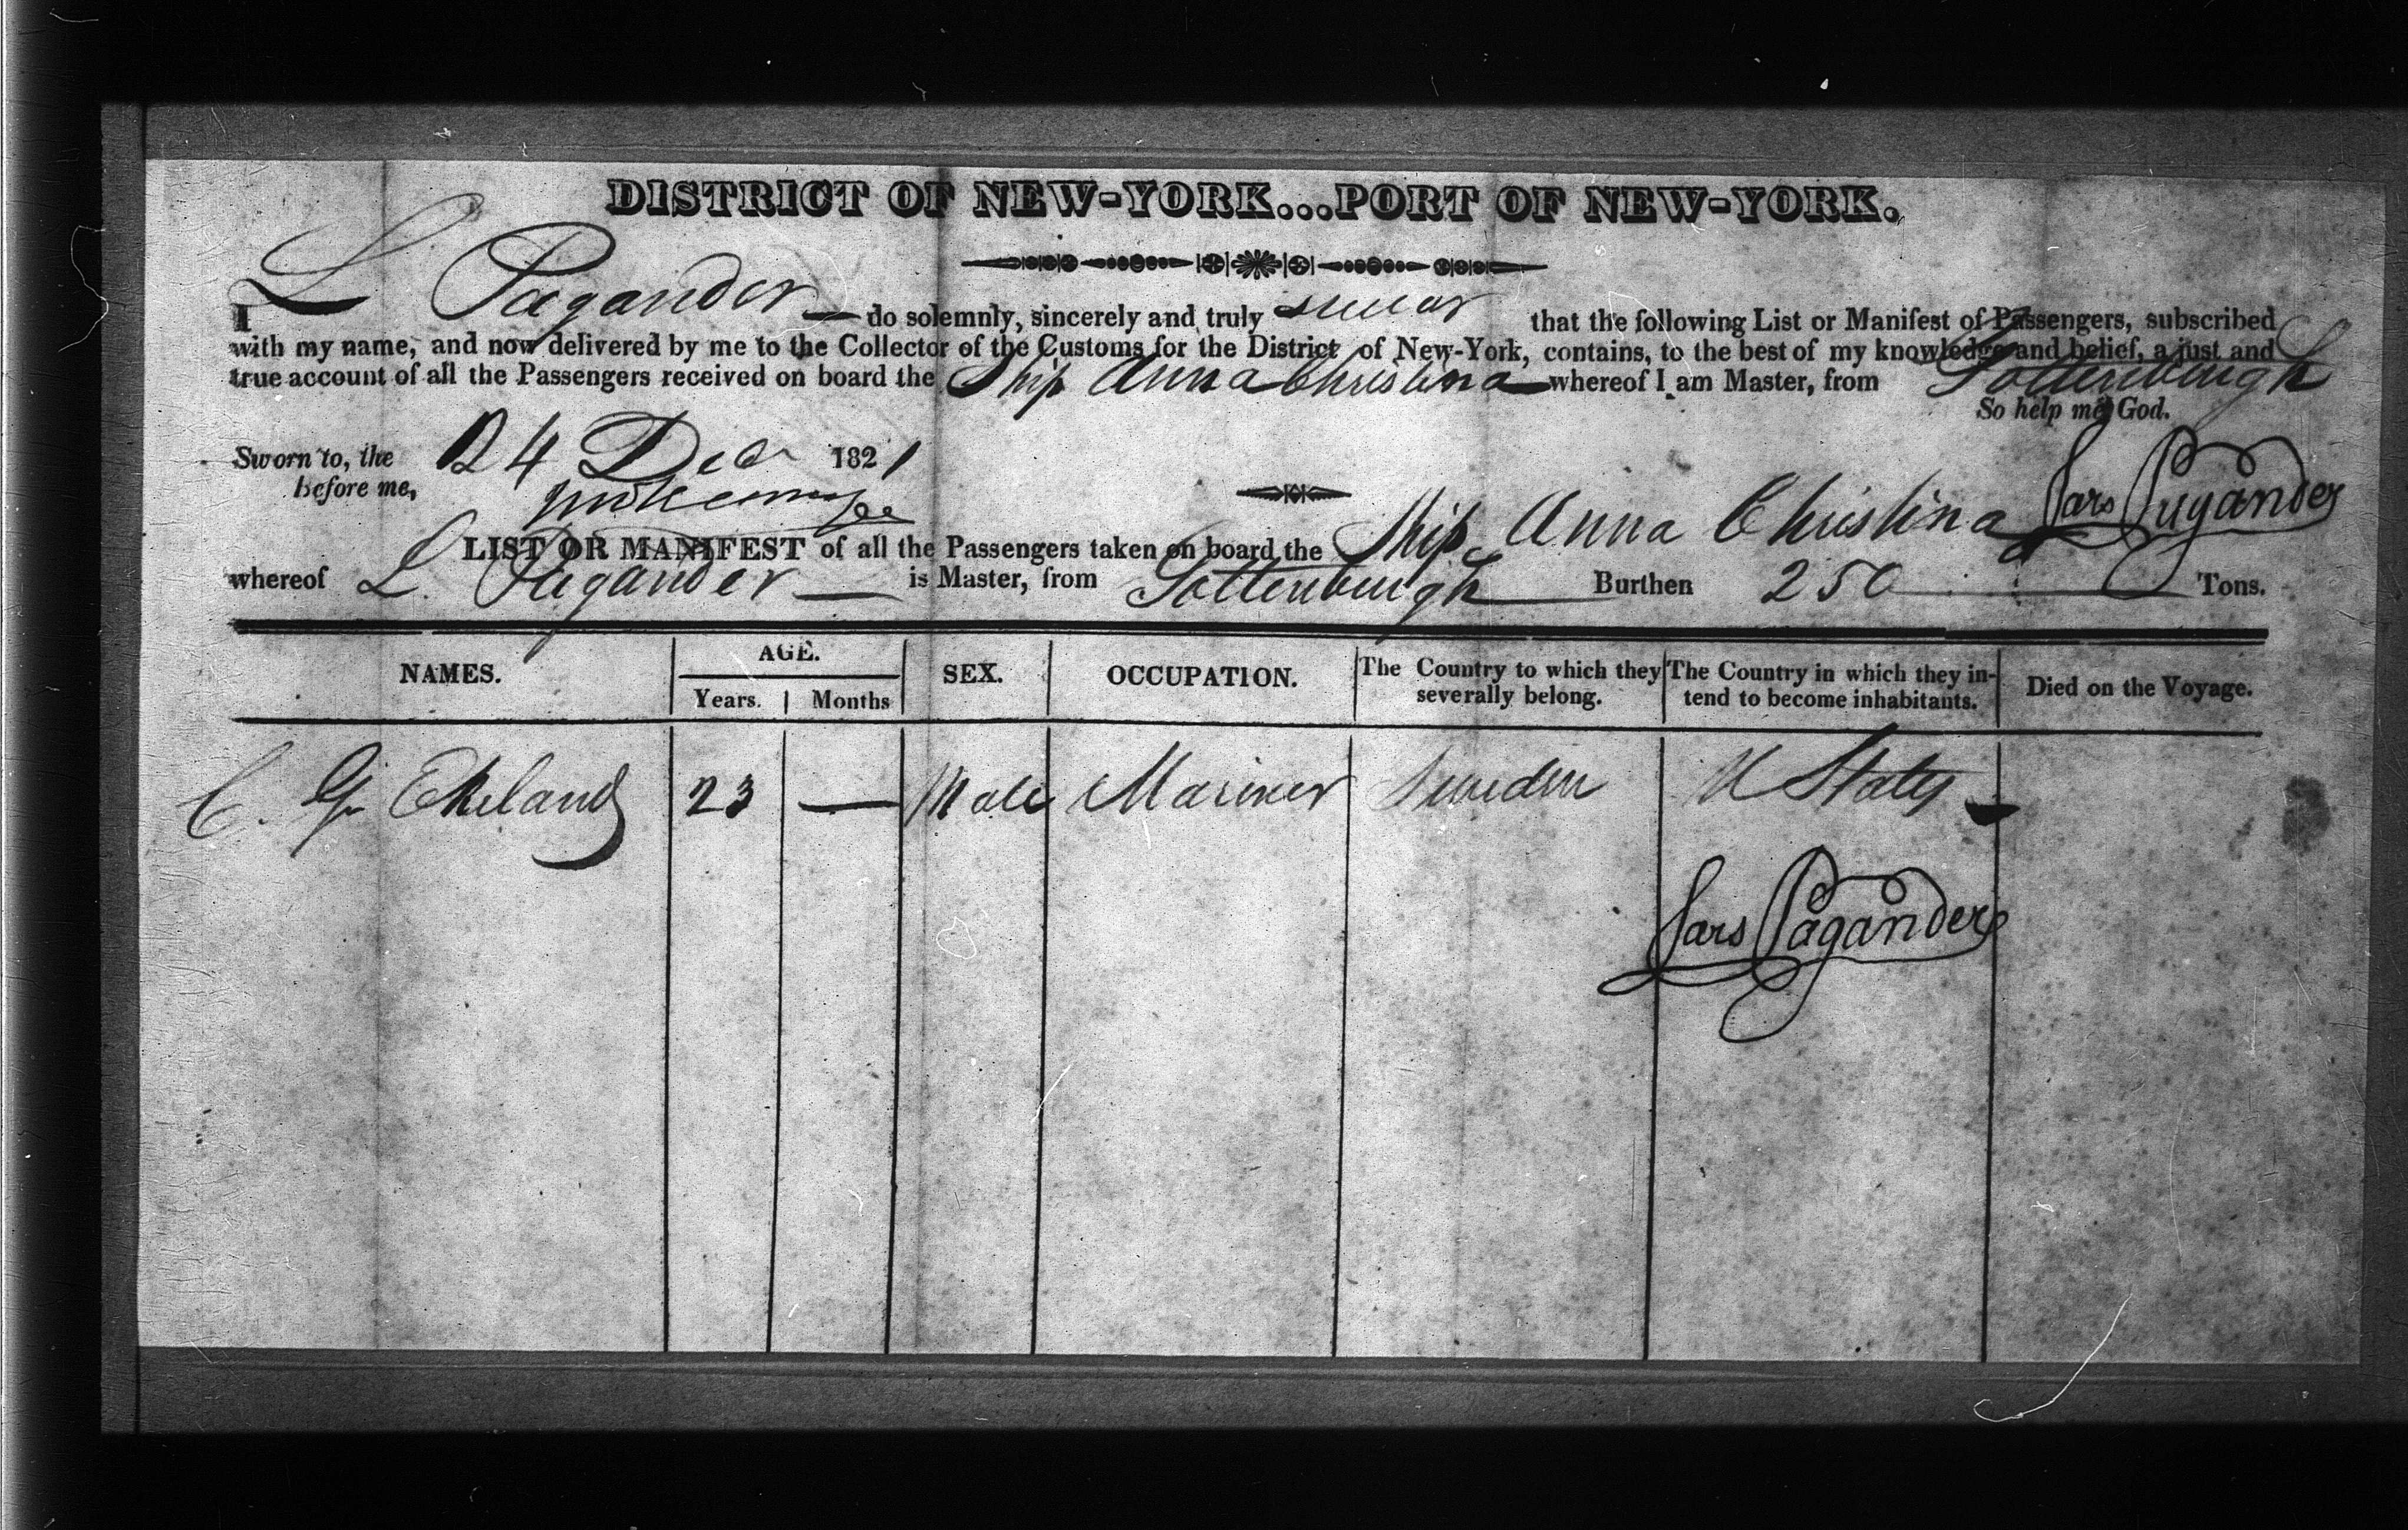 DISTRICT OF NEW-YORK...PORT OF NEW-YORK.
I L Pagander do solemnly, sincerely and truly swear that the following List or Manifest of Passengers, subscribed
with my name, and now delivered by me to the Collector of the Customs for the District of New-York, contains, to the best of my knowledge and belief, a just and
true account of all the Passengers received on board the Ship Anna Christina whereof I am Master, from Gottenburgh
So help me God.
Sworn to, the 24 Dec 1821
before me,
Lars Pagander
LIST OR MANIFEST of all the Passengers taken on board the Ship Anna Christina
whereof L. Pagander is Master, from Gottenburgh Burthen 250 Tons.
NAMES. AGE. Years. Months SEX. OCCUPATION. The Country to which they severally belong. The Country in which they intend to become inhabitants. Died on the Voyage.
C. G. Ekelund 23 — Male Mariner Sweden U States
Lars Pagander